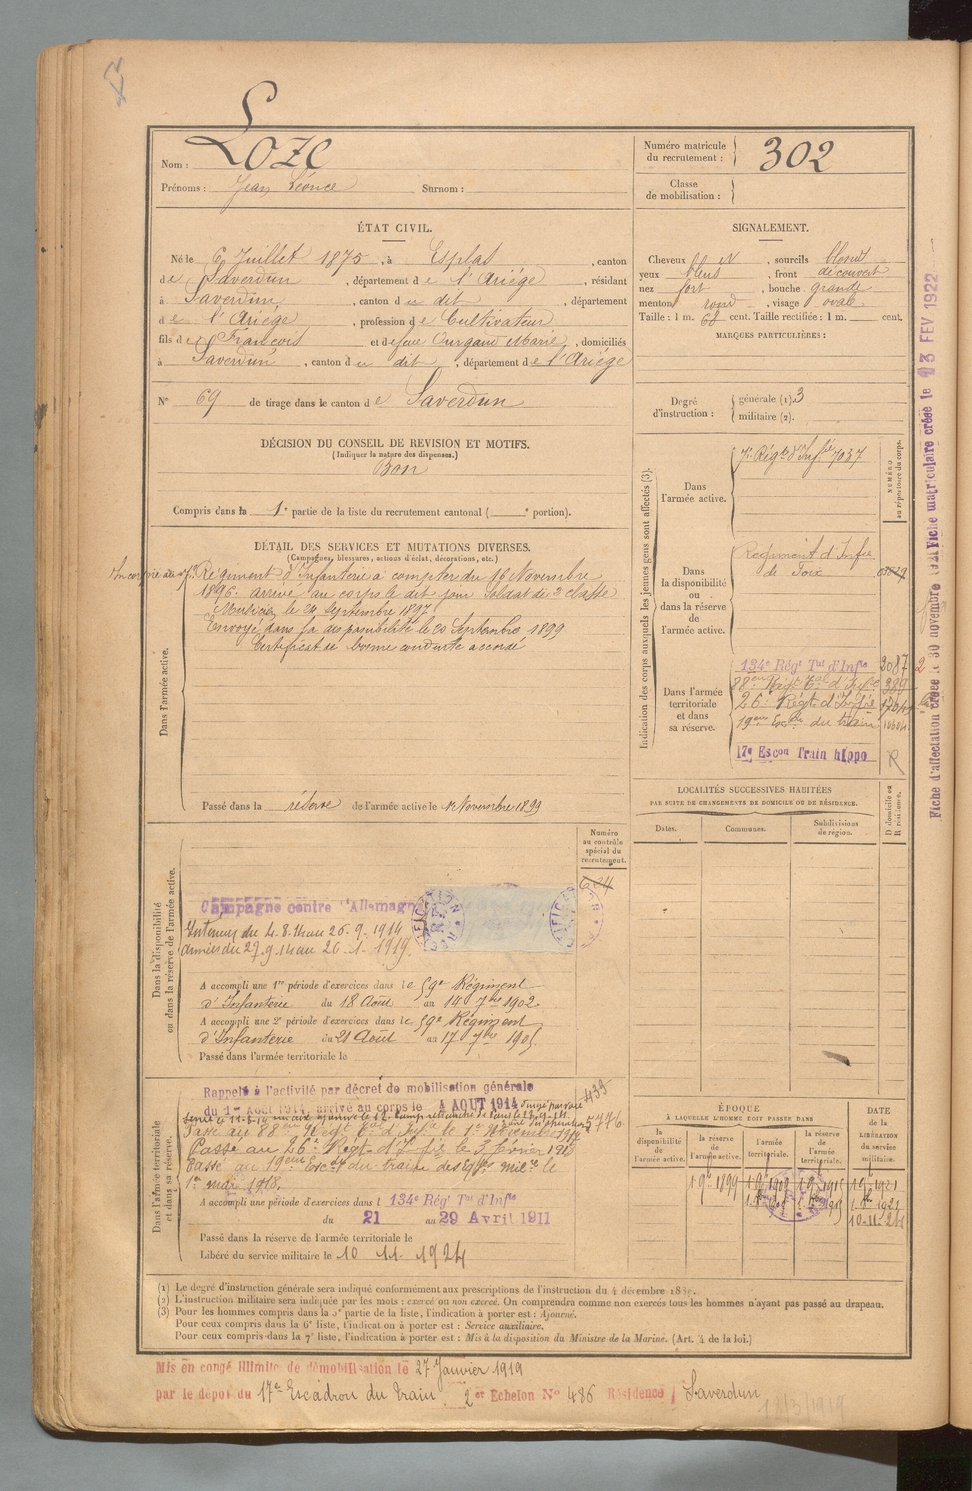 Nom : Loze
Prénoms : Jean Léonce Surnom :
Numéro matricule du recrutement : 302
Classe de mobilisation :
ÉTAT CIVIL.
Né le 6 Juillet 1875, à Esplas, canton
de Saverdun, département de l'Ariège, résidant
à Saverdun, canton du dit, département
de l'Ariège, profession de Cultivateur
fils de François et d Marie, domiciliés
à Saverdun, canton du dit, département de l'Ariège
N° 69 de tirage dans le canton de Saverdun
SIGNALEMENT.
Cheveux et, sourcils blonds
yeux bleus, front découvert
nez fort, bouche grande
menton rond, visage ovale
Taille : 1 m. 68 cent. Taille rectifiée : 1 m. cent.
MARQUES PARTICULIÈRES :
Degré d'instruction : générale (1). 3
militaire (2).
DÉCISION DU CONSEIL DE REVISION ET MOTIFS.
(Indiquer la nature des dispenses.)
Bon
Compris dans la 1e partie de la liste du recrutement cantonal ( e portion).
DÉTAIL DES SERVICES ET MUTATIONS DIVERSES.
(Campagnes, blessures, actions d'éclat, décorations, etc.)
Dans l'armée active.
Incorporé au 7e Régiment d'Infanterie à compter du 16 Novembre
1896. arrivé au corps le dit jour Soldat de 2e classe
Musicien le 24 Septembre 1897
Envoyé dans la disponibilité le 20 Septembre 1899
Certificat de bonne conduite accordé
Passé dans la réserve de l'armée active le 1 Novembre 1899
Indication des corps auxquels les jeunes gens sont affectés (3).
NUMÉRO au répertoire du corps.
Dans l'armée active.
7e Régt d'Infie 7037
Dans la disponibilité ou dans la réserve de l'armée active.
Régiment d'Infie
de Foix
Dans l'armée territoriale et dans sa réserve.
134e Régt Tal d'Infie 2087
88eme Régt Tal d'Infie
26e Régt d'Infie
19eme Escon du train
17e Escon Train hippo R
LOCALITÉS SUCCESSIVES HABITÉES
PAR SUITE DE CHANGEMENTS DE DOMICILE OU DE RÉSIDENCE.
Dates. Communes. Subdivisions de région. D domicile ou R résidence.
Dans la disponibilité ou dans la réserve de l'armée active.
Numéro au contrôle spécial du recrutement.
624
Campagne contre l'Allemagne
Intérieur du 4.8.14 au 26.9.1914
Armées du 27.9.14 au 26.1.1919.
A accompli une 1re période d'exercices dans le 59e Régiment
d'Infanterie du 18 Août au 14 7bre 1902.
A accompli une 2e période d'exercices dans le 59e Régiment
d'Infanterie du 21 Août au 17 7bre 1905
Passé dans l'armée territoriale le
Dans l'armée territoriale et dans sa réserve.
Rappelé à l'activité par décret de mobilisation générale
du 1er Août 1914, arrivé au corps le 4 AOUT 1914
Passé au 88eme Régt Tal d'Infie le 1er Novembre 1917
Passé au 26e Régt d'Infie le 3 février 1918
Passé au 19eme Escon du train des Eqges mires le
1er mai 1918.
A accompli une période d'exercices dans l 134e Régt Tal d'Infie
du 21 au 29 Avril 1911
Passé dans la réserve de l'armée territoriale le
Libéré du service militaire le 10 11 1924
ÉPOQUE
À LAQUELLE L'HOMME DOIT PASSER DANS
la disponibilité de l'armée active. la réserve de l'armée active. l'armée territoriale. la réserve de l'armée territoriale.
DATE de la LIBÉRATION du service militaire.
(1) Le degré d'instruction générale sera indiqué conformément aux prescriptions de l'instruction du 4 décembre 1889.
(2) L'instruction militaire sera indiquée par les mots : exercé ou non exercé. On comprendra comme non exercés tous les hommes n'ayant pas passé au drapeau.
(3) Pour les hommes compris dans la 5e partie de la liste, l'indication à porter est : Ajourné.
Pour ceux compris dans la 6e liste, l'indication à porter est : Service auxiliaire.
Pour ceux compris dans la 7e liste, l'indication à porter est : Mis à la disposition du Ministre de la Marine. (Art. 4 de la loi.)
Mis en congé illimité de démobilisation le 27 Janvier 1919
par le dépôt du 17e Escadron du Train 2e Echelon N° 486 Résidence Saverdun
Fiche d'affectation créée le 30 novembre 1921 Fiche matriculaire créée le 13 FEV 1922